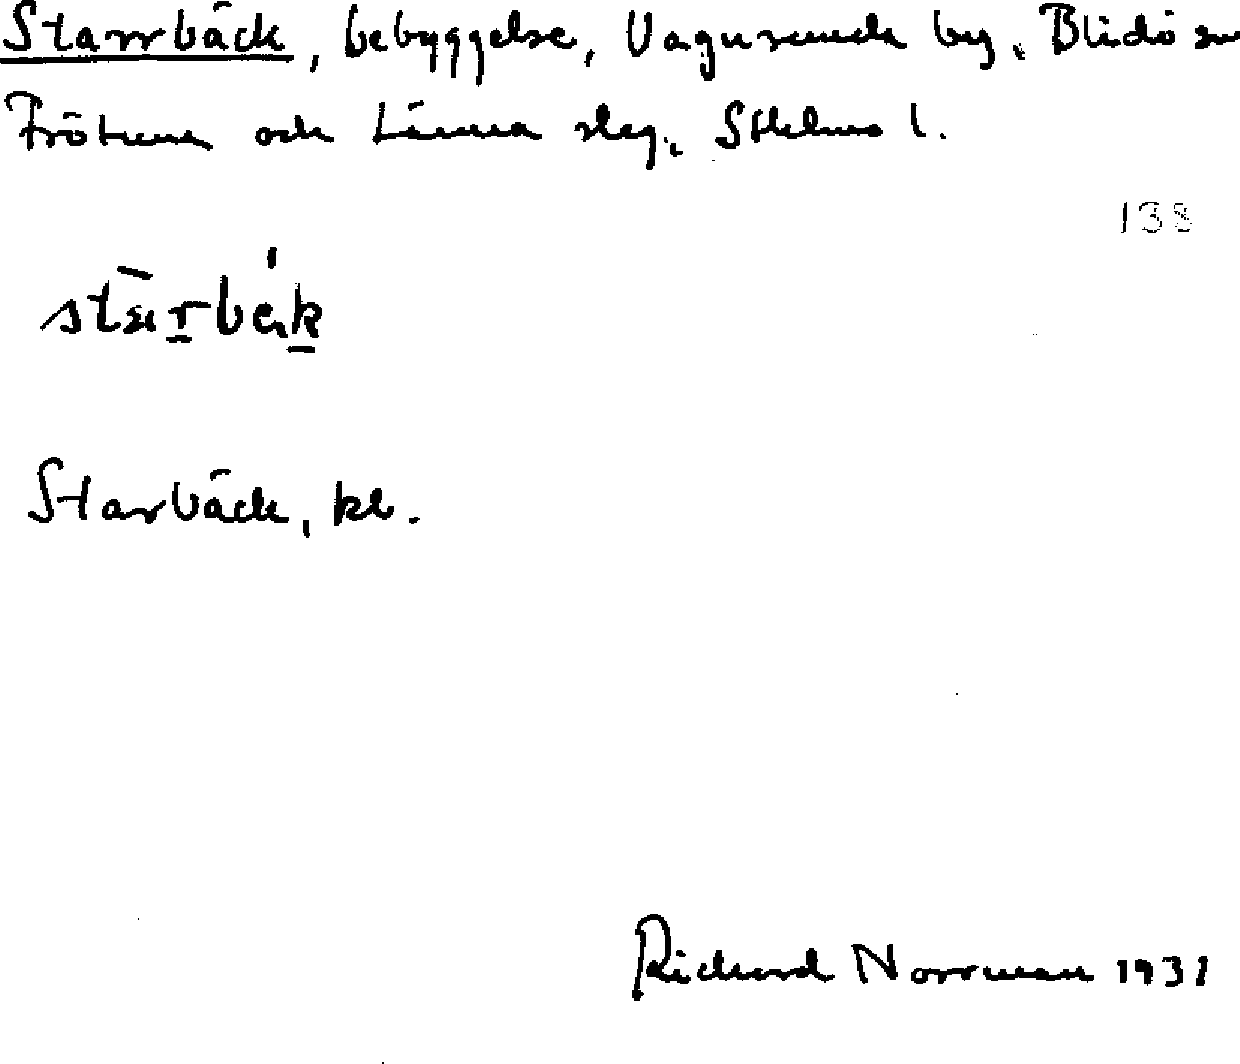 Starrbäck, bebyggelse, Vagnsunda by, Blidö sn
Frötuna och Länna skg, Sthlms l.
138
Starbäck, kb.
Richard Norrman 1931